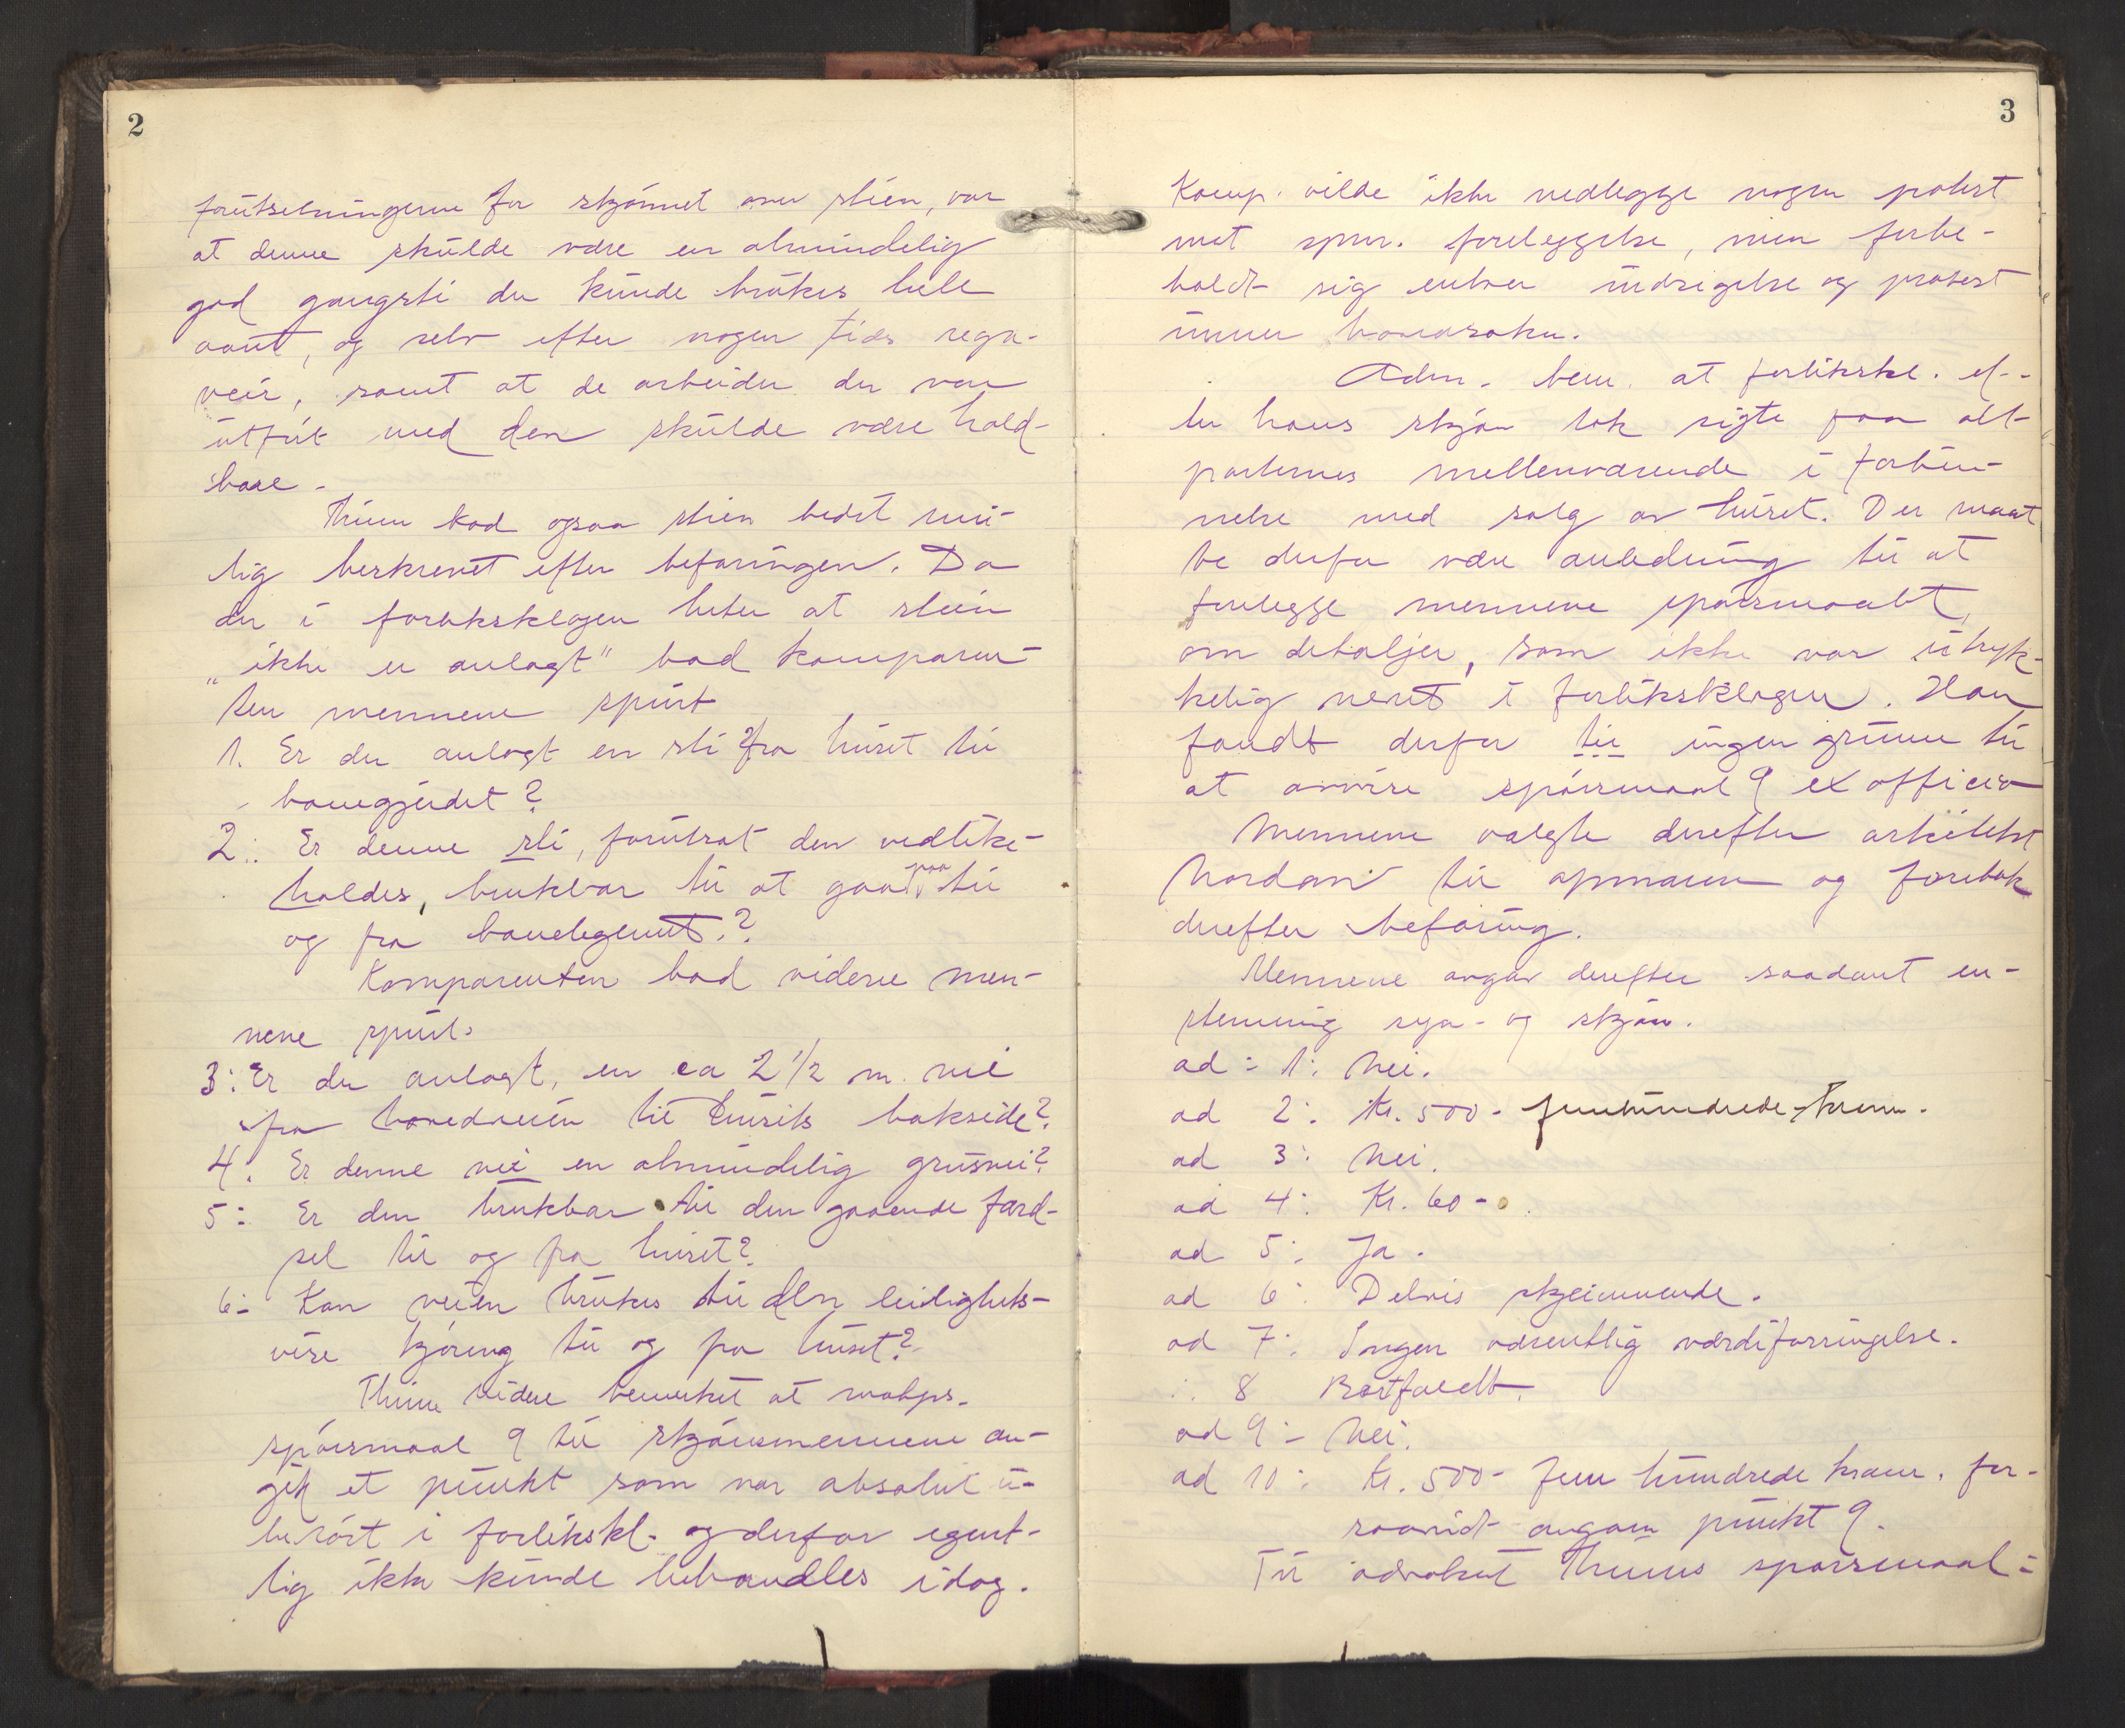 2
forutsetningerne for skjønnet over stien, var
at denne skulde være en almindelig
god gangsti der kunde brukes hele
aaret, og selv efter nogen tids regn-
veir, samt at de arbeider der var
utført med den skulde være hold-
bare.
Thune bad ogsaa stien bedst mu-
lig beskrevet efter befaringen. Da
der i forliksklagen heter at stien
"ikke er anlagt" bad komparen-
ten mennene spurt
1. Er der anlagt en sti fra huset til
banegjerdet?
2: Er denne sti, forutsat den vedlike-
holdes, brukbar til at gaa paa til
og fra banelegemet?
Komparenten bad videre men-
nene spurt.
3: Er der anlagt, en ca 2 1/2 m. vei
fra hovedveien til husets bakside?
4. Er denne vei en almindelig grusvei?
5: Er den brukbar til den gaaende færd-
sel til og fra huset?
6: Kan veien brukes til den leilighets-
vise kjøring til og fra huset?
Thune videre bemerket at motps.
spørsmaal 9 til skjønsmennene an-
gik et punkt som var absolut u-
berørt i forlikskl. og derfor egent-
lig ikke kunde behandles idag.
3
Komp. vilde ikke nedlegge nogen protest
mot spm. foreleggelse, men forbe-
holdt sig enhver indsigelse og protest
under hovedsaken.
Adm. bem. at forlikskl. ef-
ter hans skjøn tok sigte paa alt
parternes mellemværende i forbin-
nelse med salg av huset. Der maat
te derfor være anledning til at
forelegge mennene spørsmaalet
om detaljer, som ikke var utryk-
kelig nevnt i forliksklagen. Han
fandt derfor til ingen grunn til
at avvise spørsmaal 9 ex officio
Mennene valgte derefter arkitekt
Nordan til opmann og foretok
derefter befaring.
Mennene avgav derefter saadant en-
stemmig syn- og skjøn.
ad: 1: Nei.
ad 2: Kr. 500- femhundrede kroner.
ad 3: Nei.
ad 4: Kr. 60-.
ad 5: Ja.
ad 6: Delvis skjemmende.
ad 7: Ingen væsentlig værdiforringelse.
: 8 Bortfaldt.
ad 9: Nei.
ad 10: Kr. 500- fem hundrede kroner. for-
saavidt angaar punkt 9.
Til advokat Thunes spørsmaal: